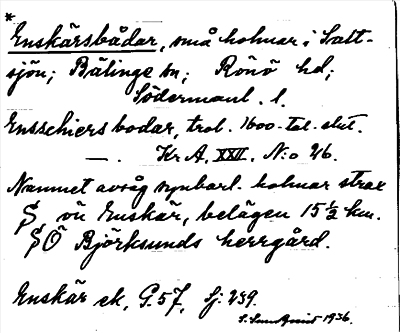 *
Enskärsbådar, små holmar i Salt-
sjön; Bälinge sn; Rönö hd;
Södermanl. l.
Ensschiers bodar, trol. 1600-tal. slut.
—. Kr A. XXII. N:o 26.
Namnet avsåg synbarl. holmar strax
S, ön Enskär, belägen 15 ½ km.
SÖ Björksunds herrgård.
Enskär ek. G. 57, Sj: 239.
1936.